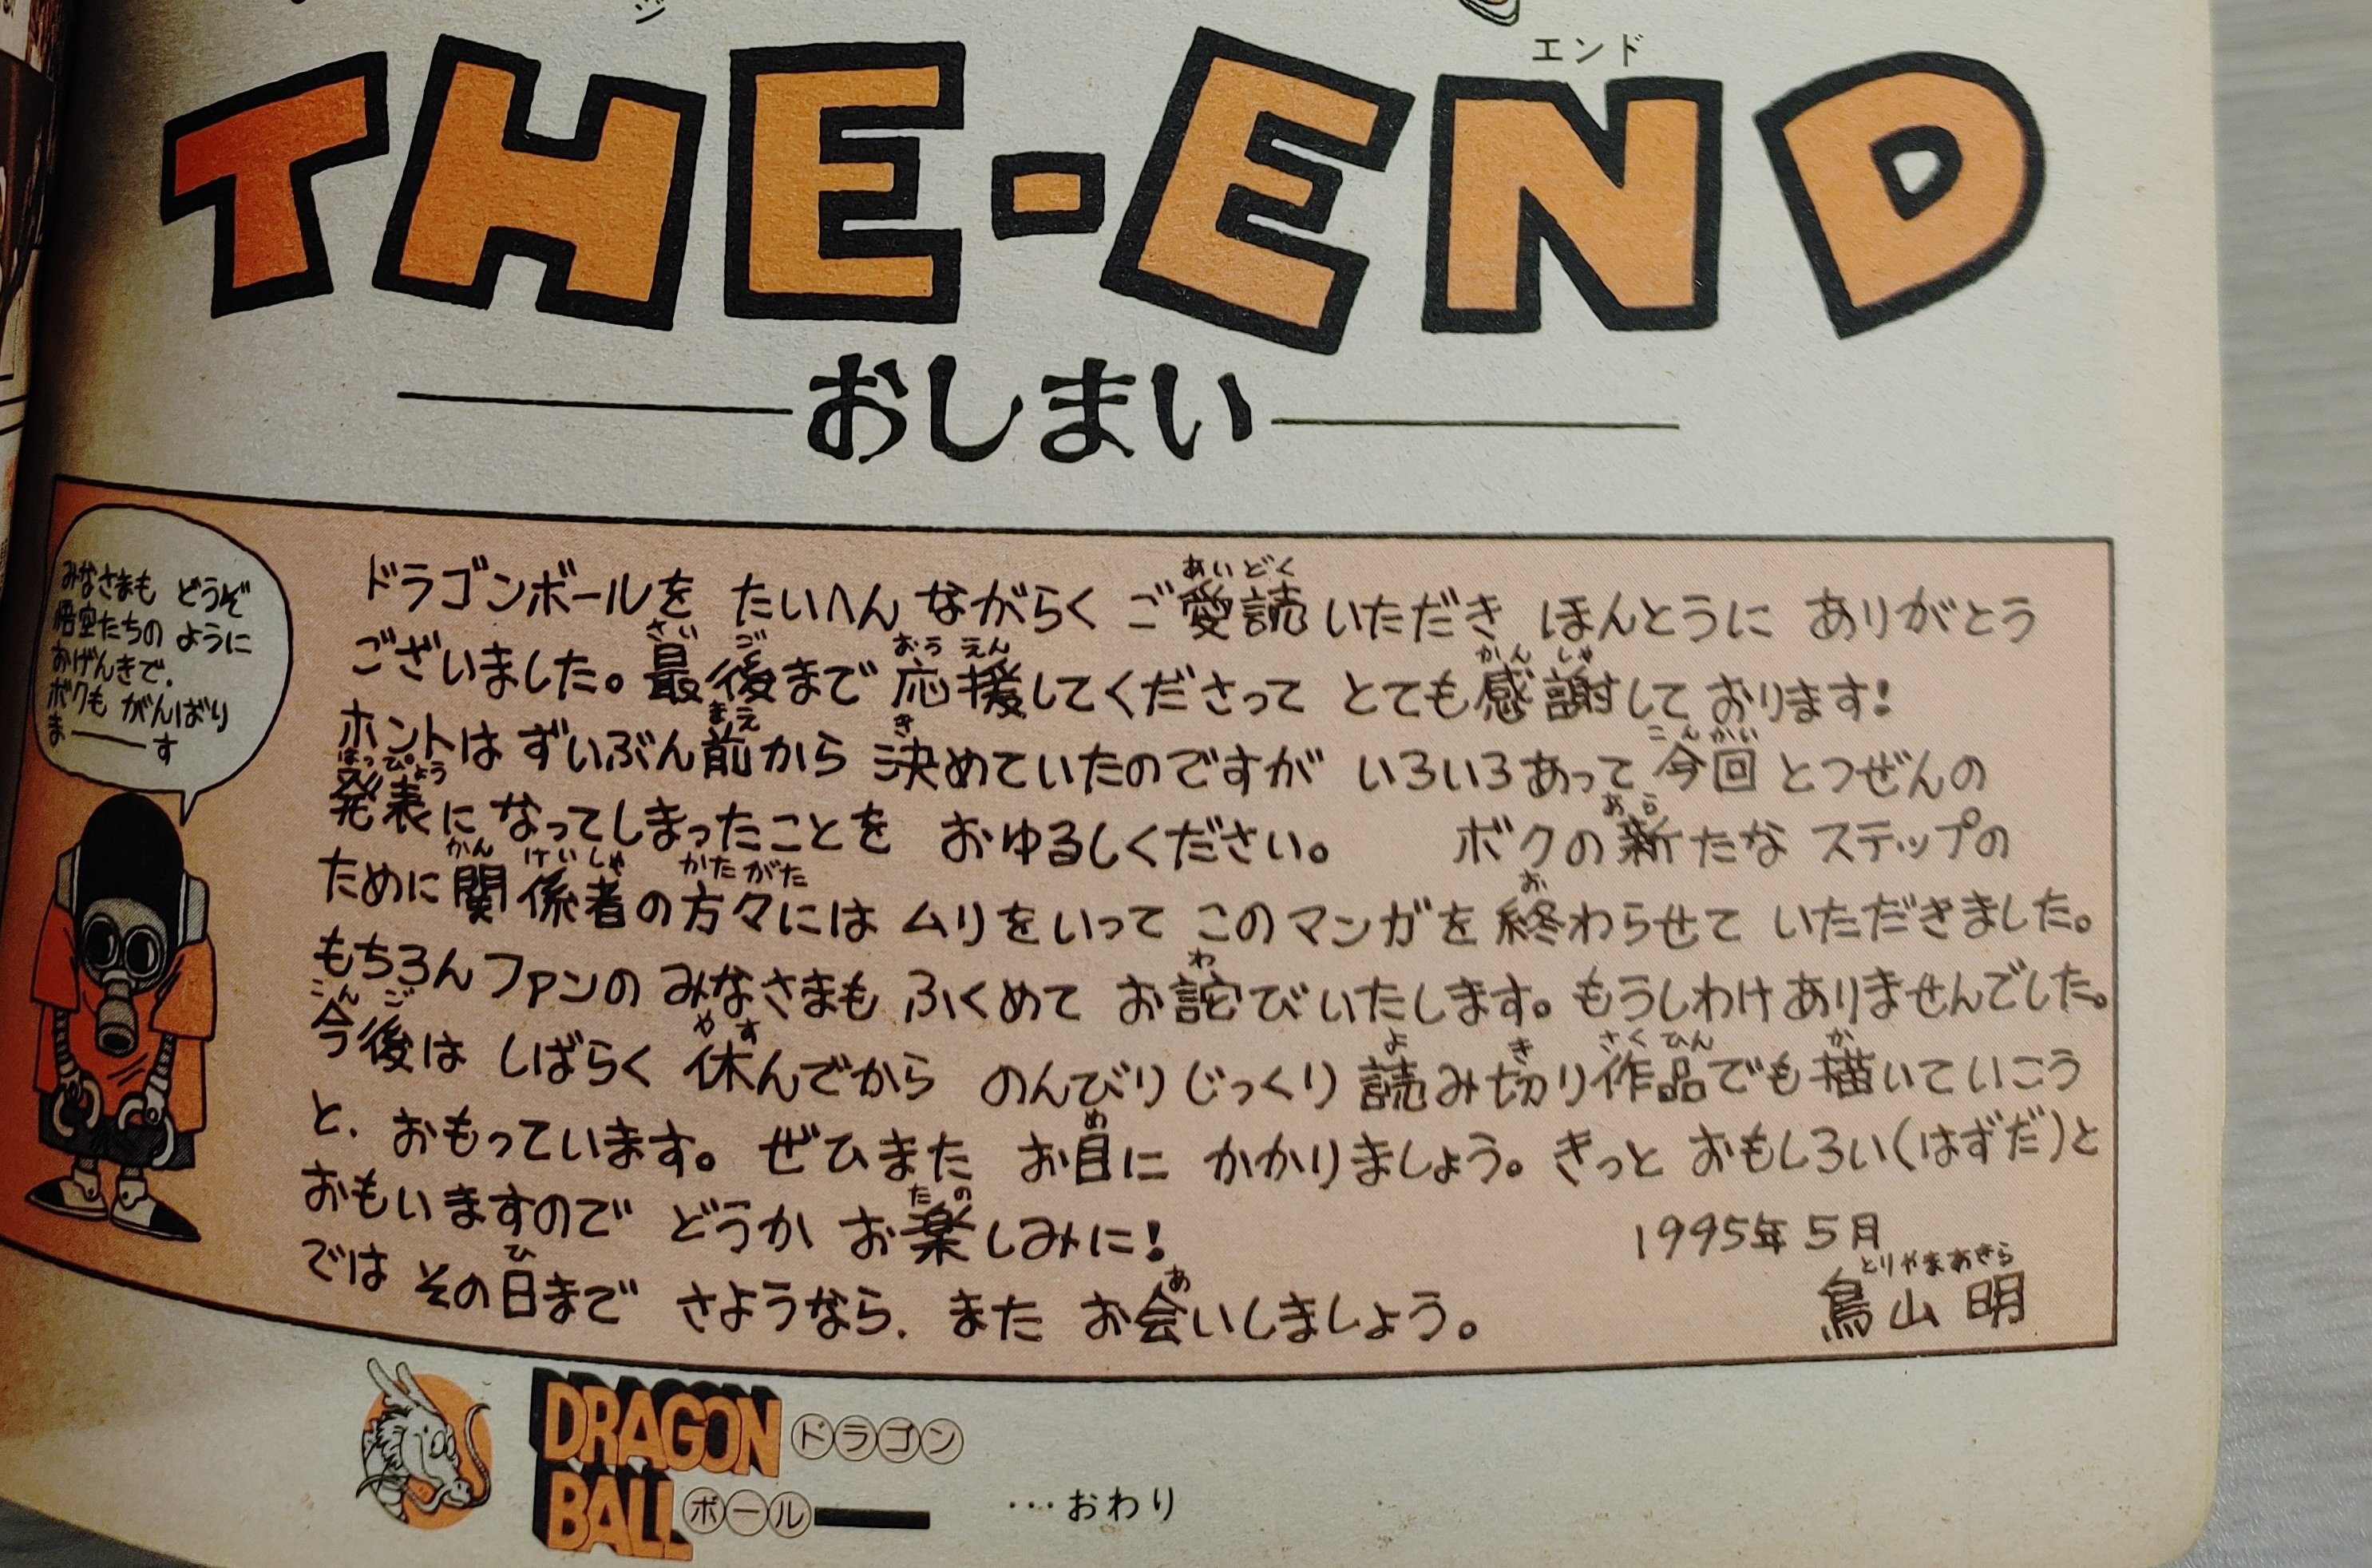 エンド
THE-END
おしまい
みなさまも どうぞ
悟空たちの ように
おげんきで.
ボクも がんばり
まーーーす
ドラゴンボールを たいへん ながらく ご愛読いただき ほんとうに ありがとう
ございました。最後まで 応援してくださって とても感謝して おります!
ホントは ずいぶん前から 決めていたのですが いろいろあって 今回 とつぜんの
発表に なってしまったことを おゆるしください。 ボクの新たな ステップの
ために関係者の方々には ムリをいって このマンガを 終わらせて いただきました。
もちろんファンの みなさまも ふくめて お詫びいたします。もうしわけありませんでした。
今後は しばらく 休んでから のんびりじっくり 読み切り作品でも描いていこう
と. おもっています。 ぜひまた お目に かかりましょう。きっと おもしろい(はずだ)と
おもいますので どうか お楽しみに!
では その日まで さようなら. また お会いしましょう。
1995年 5月
とりやまあきら
鳥山 明
DRAGON ドラゴン
BALL ボール
…おわり